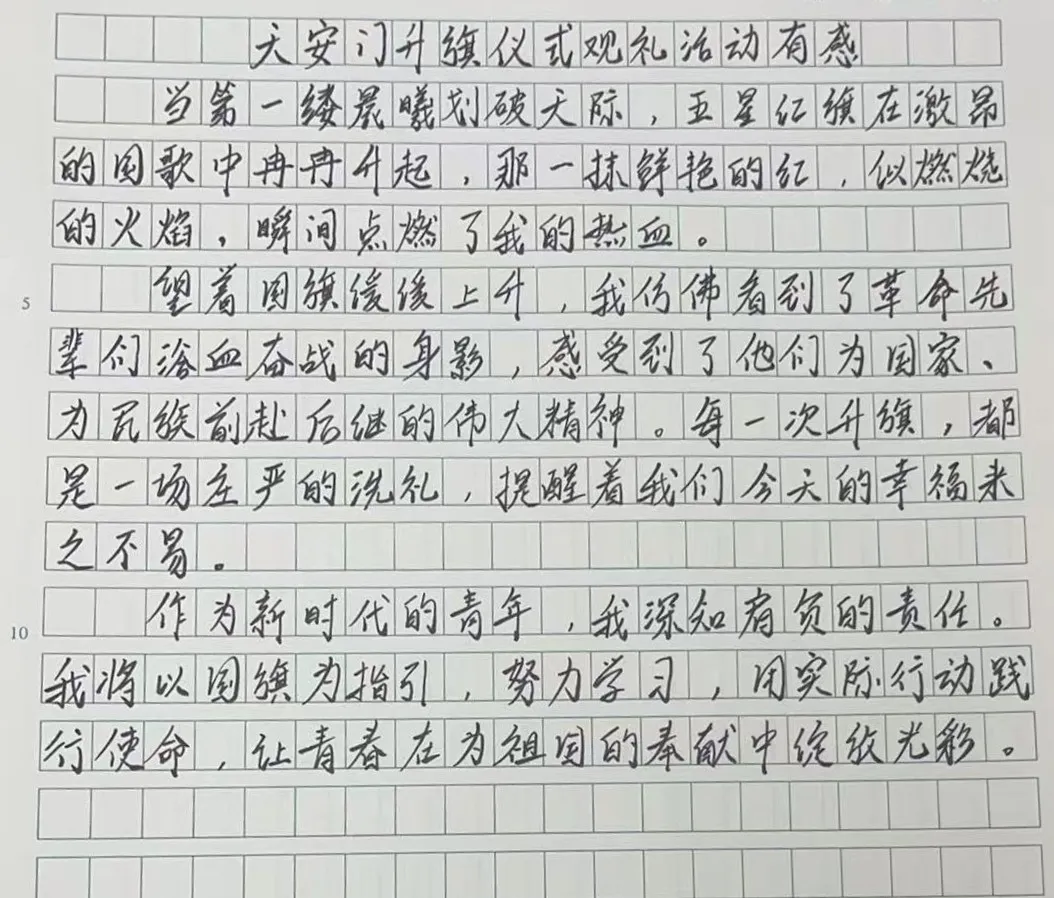 天安门升旗仪式观礼活动有感
当第一缕晨曦划破天际，五星红旗在激昂
的国歌中冉冉升起，那一抹鲜艳的红，似燃烧
的火焰，瞬间点燃了我的热血。
5 望着国旗缓缓上升，我仿佛看到了革命先
辈们浴血奋战的身影，感受到了他们为国家、
为民族前赴后继的伟大精神。每一次升旗，都
是一场庄严的洗礼，提醒着我们今天的幸福来
之不易。
10 作为新时代的青年，我深知肩负的责任。
我将以国旗为指引，努力学习，用实际行动践
行使命，让青春在为祖国的奉献中绽放光彩。